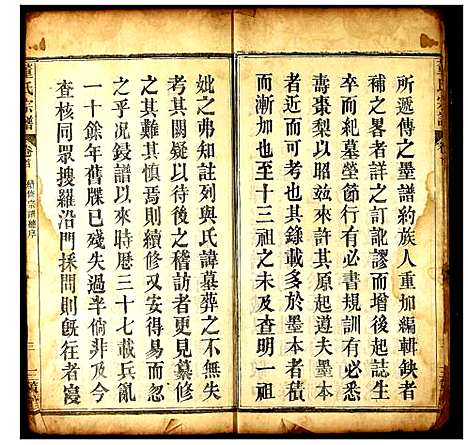 所遞傳之墨譜約族人重加編輯缺者
補之畧者詳之訂訛謬而增入起誌生
卒而紀墓塋節行有必書規訓有必悉
壽棗梨以昭玆來許其原起遵夫墨本
也而參考亦因其錄載多於墨本者積
而漸加也至十三祖之查明一祖
妣之弗知註列與氏諱墓葬之不無失
考其關疑以待後之稽訪者更見纂修
之難其慎焉則續修又安得易易視
之乎況鋟譜以來時曆三十七載兵亂
一十餘年舊牒已殘失過半倘非及今
查核同眾搜羅沿門採問則既往者寖
董氏宗譜
卷首
續修宗譜總序
三